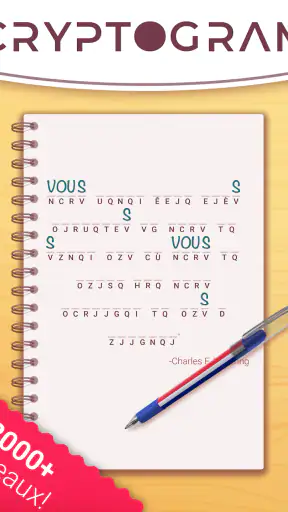 CRYPTOGRAM
VOUS S
NCRV UQNQI ÉEJQ EJÈV
S
OJRUQTEV VG NCRV TQ
S VOUS
VZNQI OZV CÙ NCRV TQ
OZJSQ HRQ NCRV
S
OCRJJGQI TQ OZV D
ZJJGNQJ
-Charles
000+
eaux!